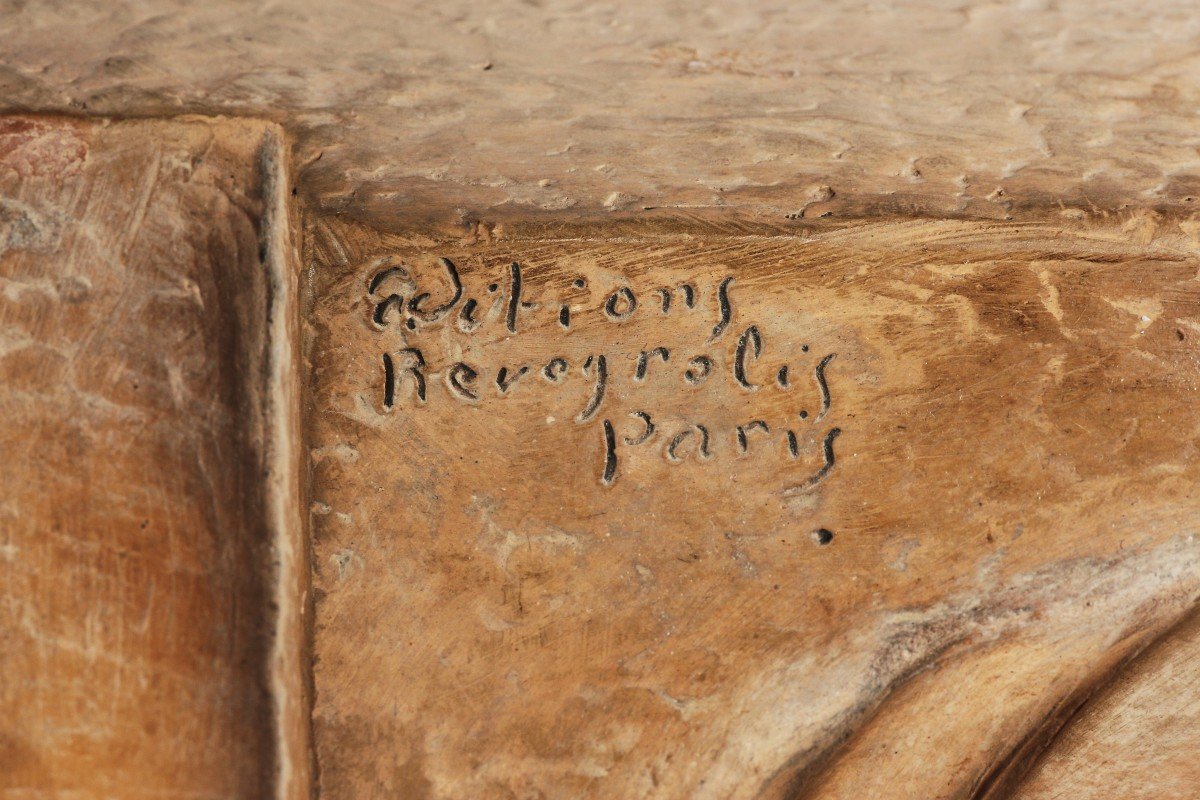 Editions
Reveyrolis
paris